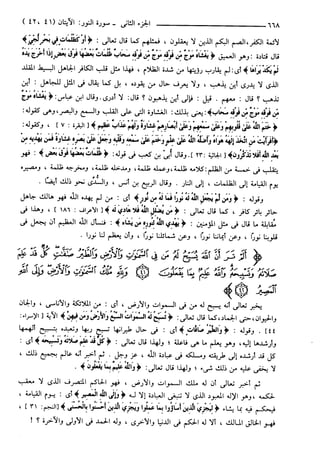 ٦٦٨ الجزء الثانى - سورة النور: الآيتان (٤١، ٤٢)
لأئمة الكفر، الصم البكم الذين لا يعقلون، فمثلهم كما قال تعالى: ﴿ أَوْ كَظُلُمَاتٍ فِي بَحْرٍ لُّجِّيٍّ ﴾
قال قتادة: وهو العميق ﴿ يَغْشَاهُ مَوْجٌ مِّن فَوْقِهِ مَوْجٌ مِّن فَوْقِهِ سَحَابٌ ظُلُمَاتٌ بَعْضُهَا فَوْقَ بَعْضٍ إِذَا أَخْرَجَ يَدَهُ
لَمْ يَكَدْ يَرَاهَا ﴾ أى: لم يقارب رؤيتها من شدة الظلام، فهذا مثل قلب الكافر الجاهل البسيط المقلد
الذى لا يدرى أين يذهب، ولا يعرف حال من يقوده، بل كما يقال فى المثل للجاهل: أين
تذهب؟ قال: معهم. قيل: فإلى أين يذهبون؟ قال: لا أدرى. وقال ابن عباس: ﴿ يَغْشَاهُ مَوْجٌ
مِّن فَوْقِهِ مَوْجٌ مِّن فَوْقِهِ سَحَابٌ ﴾: يعنى بذلك: الغشاوة التى على القلب والسمع والبصر، وهى كقوله:
﴿ خَتَمَ اللَّهُ عَلَىٰ قُلُوبِهِمْ وَعَلَىٰ سَمْعِهِمْ وَعَلَىٰ أَبْصَارِهِمْ غِشَاوَةٌ وَلَهُمْ عَذَابٌ عَظِيمٌ ﴾ [البقرة: ٧]، وكقوله:
﴿ أَفَرَأَيْتَ مَنِ اتَّخَذَ إِلَٰهَهُ هَوَاهُ وَأَضَلَّهُ اللَّهُ عَلَىٰ عِلْمٍ وَخَتَمَ عَلَىٰ سَمْعِهِ وَقَلْبِهِ وَجَعَلَ عَلَىٰ بَصَرِهِ غِشَاوَةً فَمَن يَهْدِيهِ مِنْ
بَعْدِ اللَّهِ أَفَلَا تَذَكَّرُونَ ﴾ [الجاثية: ٢٣]. وقال أبى بن كعب فى قوله: ﴿ ظُلُمَاتٌ بَعْضُهَا فَوْقَ بَعْضٍ ﴾: فهو
يتقلب فى خمسة من الظلم: كلامه ظلمة، وعمله ظلمة، ومدخله ظلمة، ومخرجه ظلمة، ومصيره
يوم القيامة إلى الظلمات، إلى النار. وقال الربيع بن أنس، والسدى نحو ذلك أيضاً.
وقوله: ﴿ وَمَن لَّمْ يَجْعَلِ اللَّهُ لَهُ نُورًا فَمَا لَهُ مِن نُّورٍ ﴾ أى: من لم يهده الله فهو هالك جاهل
حائر بائر كافر، كما قال تعالى: ﴿ مَن يُضْلِلِ اللَّهُ فَلَا هَادِيَ لَهُ ﴾ [الأعراف: ١٨٦]، وهذا فى
مقابلة ما قال فى مثل المؤمنين: ﴿ يَهْدِي اللَّهُ لِنُورِهِ مَن يَشَاءُ ﴾: فنسأل الله العظيم أن يجعل فى
قلوبنا نوراً، وعن أيماننا نوراً، وعن شمائلنا نوراً، وأن يعظم لنا نوراً.
﴿ أَلَمْ تَرَ أَنَّ اللَّهَ يُسَبِّحُ لَهُ مَن فِي السَّمَاوَاتِ وَالْأَرْضِ وَالطَّيْرُ صَافَّاتٍ كُلٌّ قَدْ عَلِمَ
صَلَاتَهُ وَتَسْبِيحَهُ وَاللَّهُ عَلِيمٌ بِمَا يَفْعَلُونَ ٤١ وَلِلَّهِ مُلْكُ السَّمَاوَاتِ وَالْأَرْضِ وَإِلَى اللَّهِ
الْمَصِيرُ ٤٢ ﴾
يخبر تعالى أنه يسبح له من فى السموات والأرض، أى: من الملائكة والأناسى، والجان
والحيوان، حتى الجماد، كما قال تعالى: ﴿ تُسَبِّحُ لَهُ السَّمَاوَاتُ السَّبْعُ وَالْأَرْضُ وَمَن فِيهِنَّ ﴾ الآية [الإسراء:
٤٤]. وقوله: ﴿ وَالطَّيْرُ صَافَّاتٍ ﴾ أى: فى حال طيرانها تسبح ربها وتعبده بتسبيح ألهمها
وأرشدها إليه، وهو يعلم ما هى فاعلة؛ ولهذا قال تعالى: ﴿ كُلٌّ قَدْ عَلِمَ صَلَاتَهُ وَتَسْبِيحَهُ ﴾ أى:
كل قد أرشده إلى طريقته ومسلكه فى عبادة الله، عز وجل. ثم أخبر أنه عالم بجميع ذلك،
لا يخفى عليه من ذلك شىء؛ ولهذا قال تعالى: ﴿ وَاللَّهُ عَلِيمٌ بِمَا يَفْعَلُونَ ﴾.
ثم أخبر تعالى أن له ملك السموات والأرض، فهو الحاكم المتصرف الذى لا معقب
لحكمه، وهو الإله المعبود الذى لا تنبغى العبادة إلا له ﴿ وَإِلَى اللَّهِ الْمَصِيرُ ﴾ أى: يوم القيامة،
فيحكم فيه بما يشاء ﴿ لِيَجْزِيَ الَّذِينَ أَسَاءُوا بِمَا عَمِلُوا وَيَجْزِيَ الَّذِينَ أَحْسَنُوا بِالْحُسْنَى ﴾ [النجم: ٣١]،
فهو الخالق المالك، ألا له الحكم فى الدنيا والأخرى، وله الحمد فى الأولى والآخرة؟!